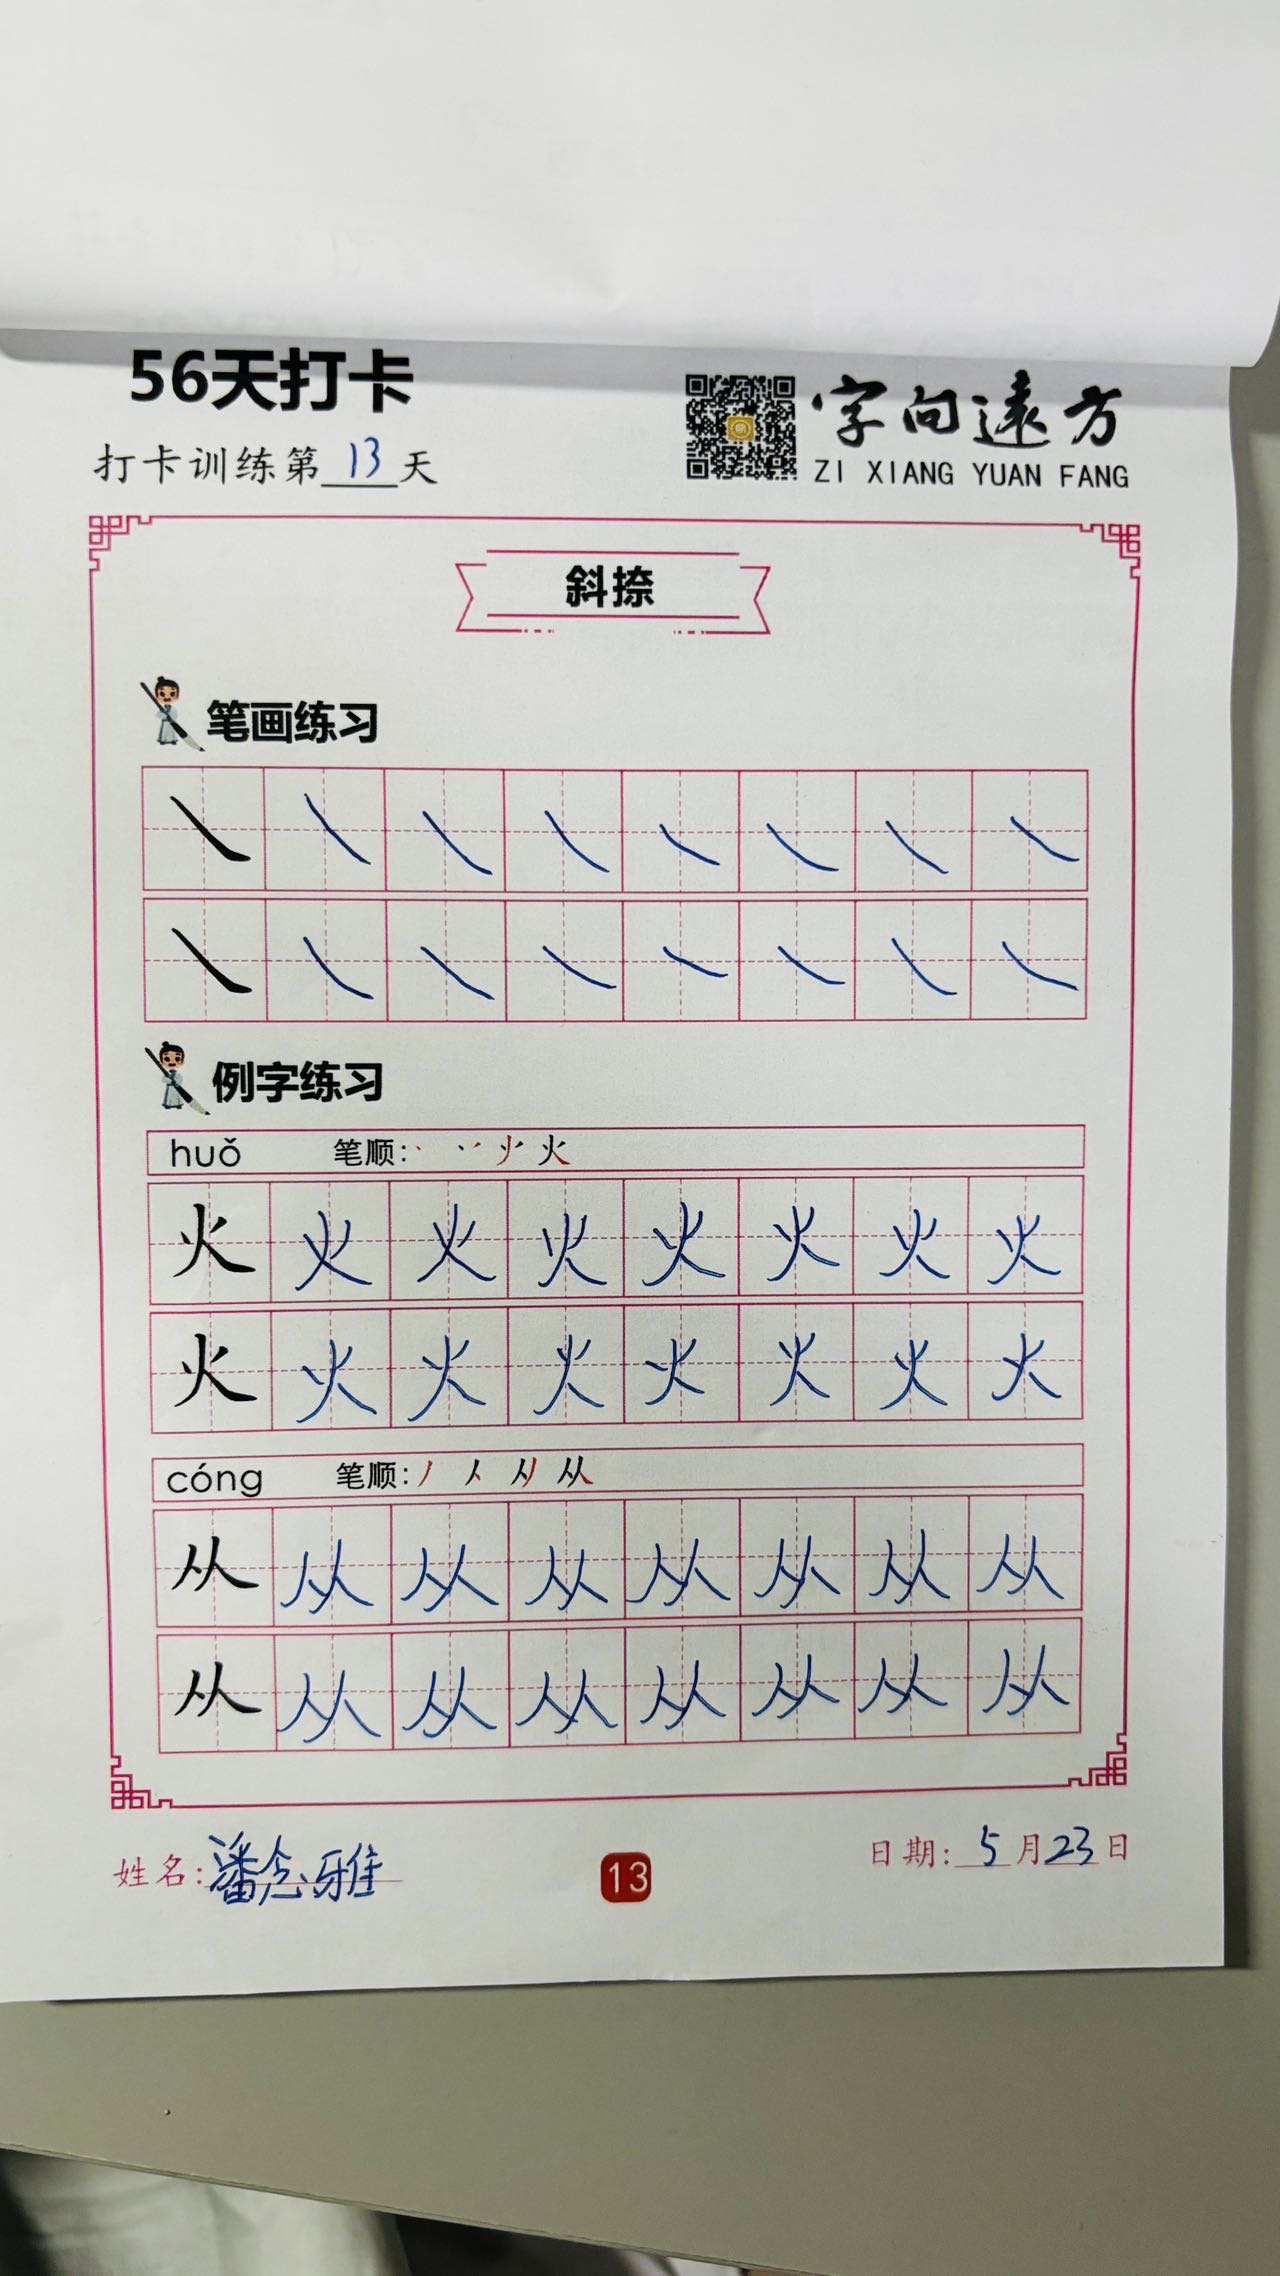 56天打卡
打卡训练第13天
字向遠方
ZI XIANG YUAN FANG
斜捺
笔画练习
㇏ ㇏ ㇏ ㇏ ㇏ ㇏ ㇏ ㇏
㇏ ㇏ ㇏ ㇏ ㇏ ㇏ ㇏ ㇏
例字练习
huǒ 笔顺: 火
火 火 火 火 火 火 火 火
火 火 火 火 火 火 火 火
cóng 笔顺: 丿 人 从
从 从 从 从 从 从 从 从
从 从 从 从 从 从 从 从
姓名:潘念雅
13
日期:5月23日